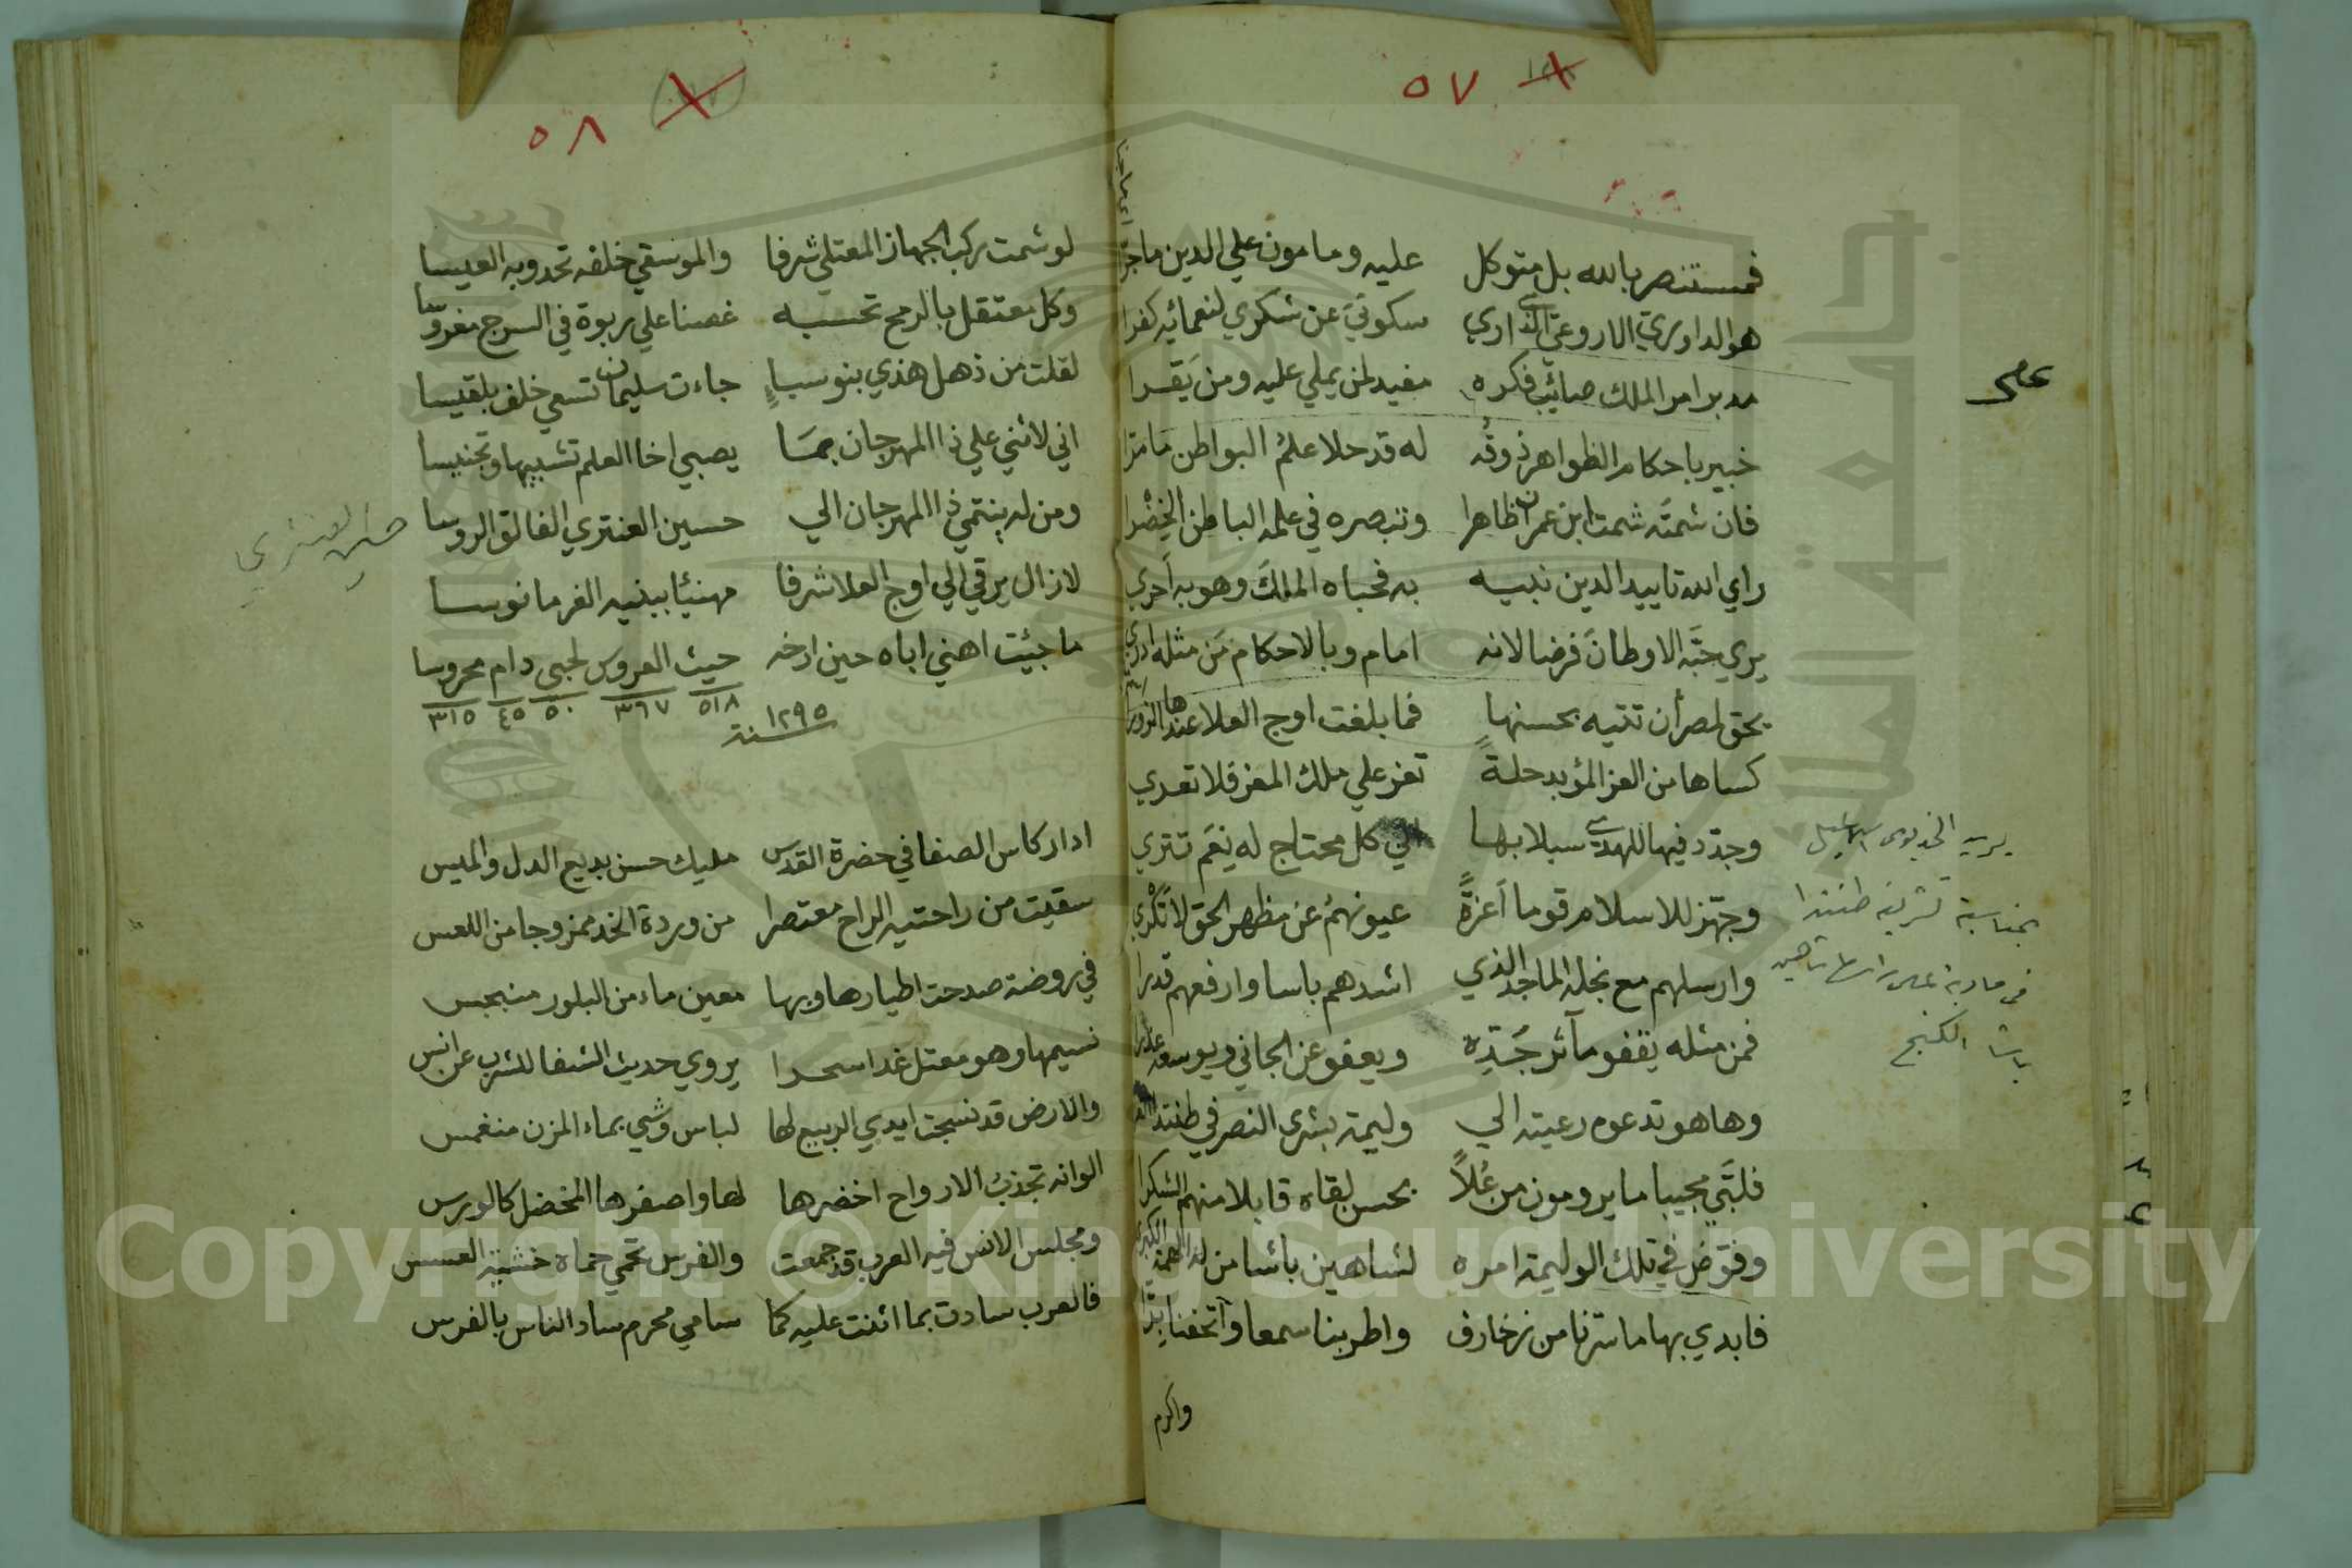 ٥٧
فمستنصر بالله بل متوكل عليه ومامون علي الدين ماجرا
هو الداوري الاروعي الذاري سكوتي عن شكري لنعمائه كفرا
مدبر امر الملك صائب فكره مفيد لمن يملي عليه ومن يَقرا
خبير باحكام الظواهر ذوقُه له قد حلا علمُ البواطن مامرّا
فان شمتَه شمت ابن عمران ظاهرا وتبصره في علمه الباطن الخِضْرا
راي الله تاييد الدين نبيه به فحباه الملكَ وهو به أحري
يري حبَّه الاوطانَ فرضا لانه امام وبالاحكام مَن مثله ادري
يحق لمصر أن تتيه بحسنها فما بلغت اوج العلا عندها
كساها من العز المؤبد حلةً تعز علي ملك المعز فلا تعري
وجدّد فيها للهدي سبلا بها الي كل محتاج له نِعَم تتري
وجهّز للاسلام قوما أعزةً عيونهمُ عن مظهر الحق لا تَكْري
وارسلهم مع نجله الماجد الذي اشدهم باسا وارفعهم قدرا
فمن مثله يقفو مآثر جَدِّه ويعفو عن الجاني ويوسعه عذرا
وها هو تدعوه رعيته الي وليمة بشرى النصر في طنتدا
فلبَّي مجيبا ما يرومون من عُلاً بحسن لقاه قابلا منهم الشكرا
وفوّض في تلك الوليمة امره لشاهين باشا من له الهمة الكبرى
فابدي بها ما سرنا من زخارف واطربنا سمعا واتحفنا
واكرم
يريد الخديوى اسماعيل
بمناسبة تشريفه طنتدا
باشا الكنج
٥٨
لو شمت ركب الجهاز المعتلي شرفا والموسقي خلفه تحدو به العيسا
وكل معتقل بالرمح تحسبه غصنا علي ربوة في السرج مغروسا
لقلت من ذهل هذي بنو سباٍ جاءت سليمان تسعي خلف بلقيسا
اني لاثني علي ذا المهرجان بما يصبي اخا العلم تشبيها وتجنيسا
ومن له ينتمي ذا المهرجان الي حسين العنتري الفالق الروسا
لازال يرقي الي اوج العلا شرفا مهنيئا ببنيه الغر مانوسا
ما جئيت اهني اباه حين ارخه حيث العروس لحبى دام محروسا
٥١٨ ٣٦٧ ٥٠ ٤٥ ٣١٥
سنة ١٢٩٥
حسين العنتري
ادار كاس الصفا في حضرة القدس مليك حسن بديع الدل والميس
سقيت من راحتيه الراح معتصرا من وردة الخد ممزوجا من اللعس
في روضة صدحت اطيارها وبها معين ماء من البلور منبجس
نسيمها وهو معتل غدا سحرا يروي حديث الشفا للشرب عن انس
والارض قد نسجت ايدي الربيع لها لباس وشي بماء المزن منغمس
الوانه تجذب الارواح اخضرها لها واصفرها المخضل كالورس
ومجلس الانس فيه العرب قد جمعت والفرس تحمي حماه خشية العسس
فالعرب سادت بما اثنت عليه كما سامي محرم ساد الناس بالفرس
Copyright © King Saud University